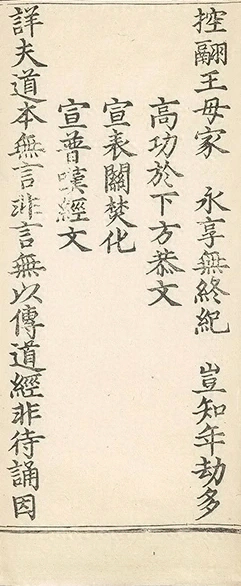 控翮王母家　永享無終紀　豈知年劫多
高功於下方恭文
宣表關焚化
宣普嘆經文
詳夫道本無言非言無以傳道經非待誦因